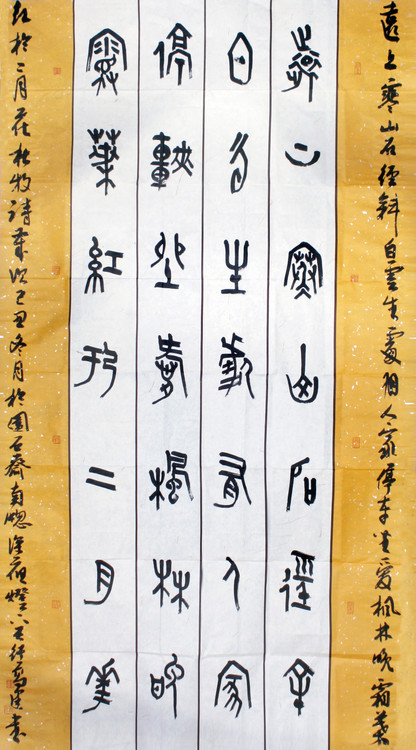 遠上寒山石徑斜
白雲生處有人家
停車坐愛楓林晚
霜葉紅於二月花
遠上寒山石徑斜白雲生處有人家停車坐愛楓林晚霜葉
紅於二月花杜牧詩歲次己丑冬月於園石齋南窗